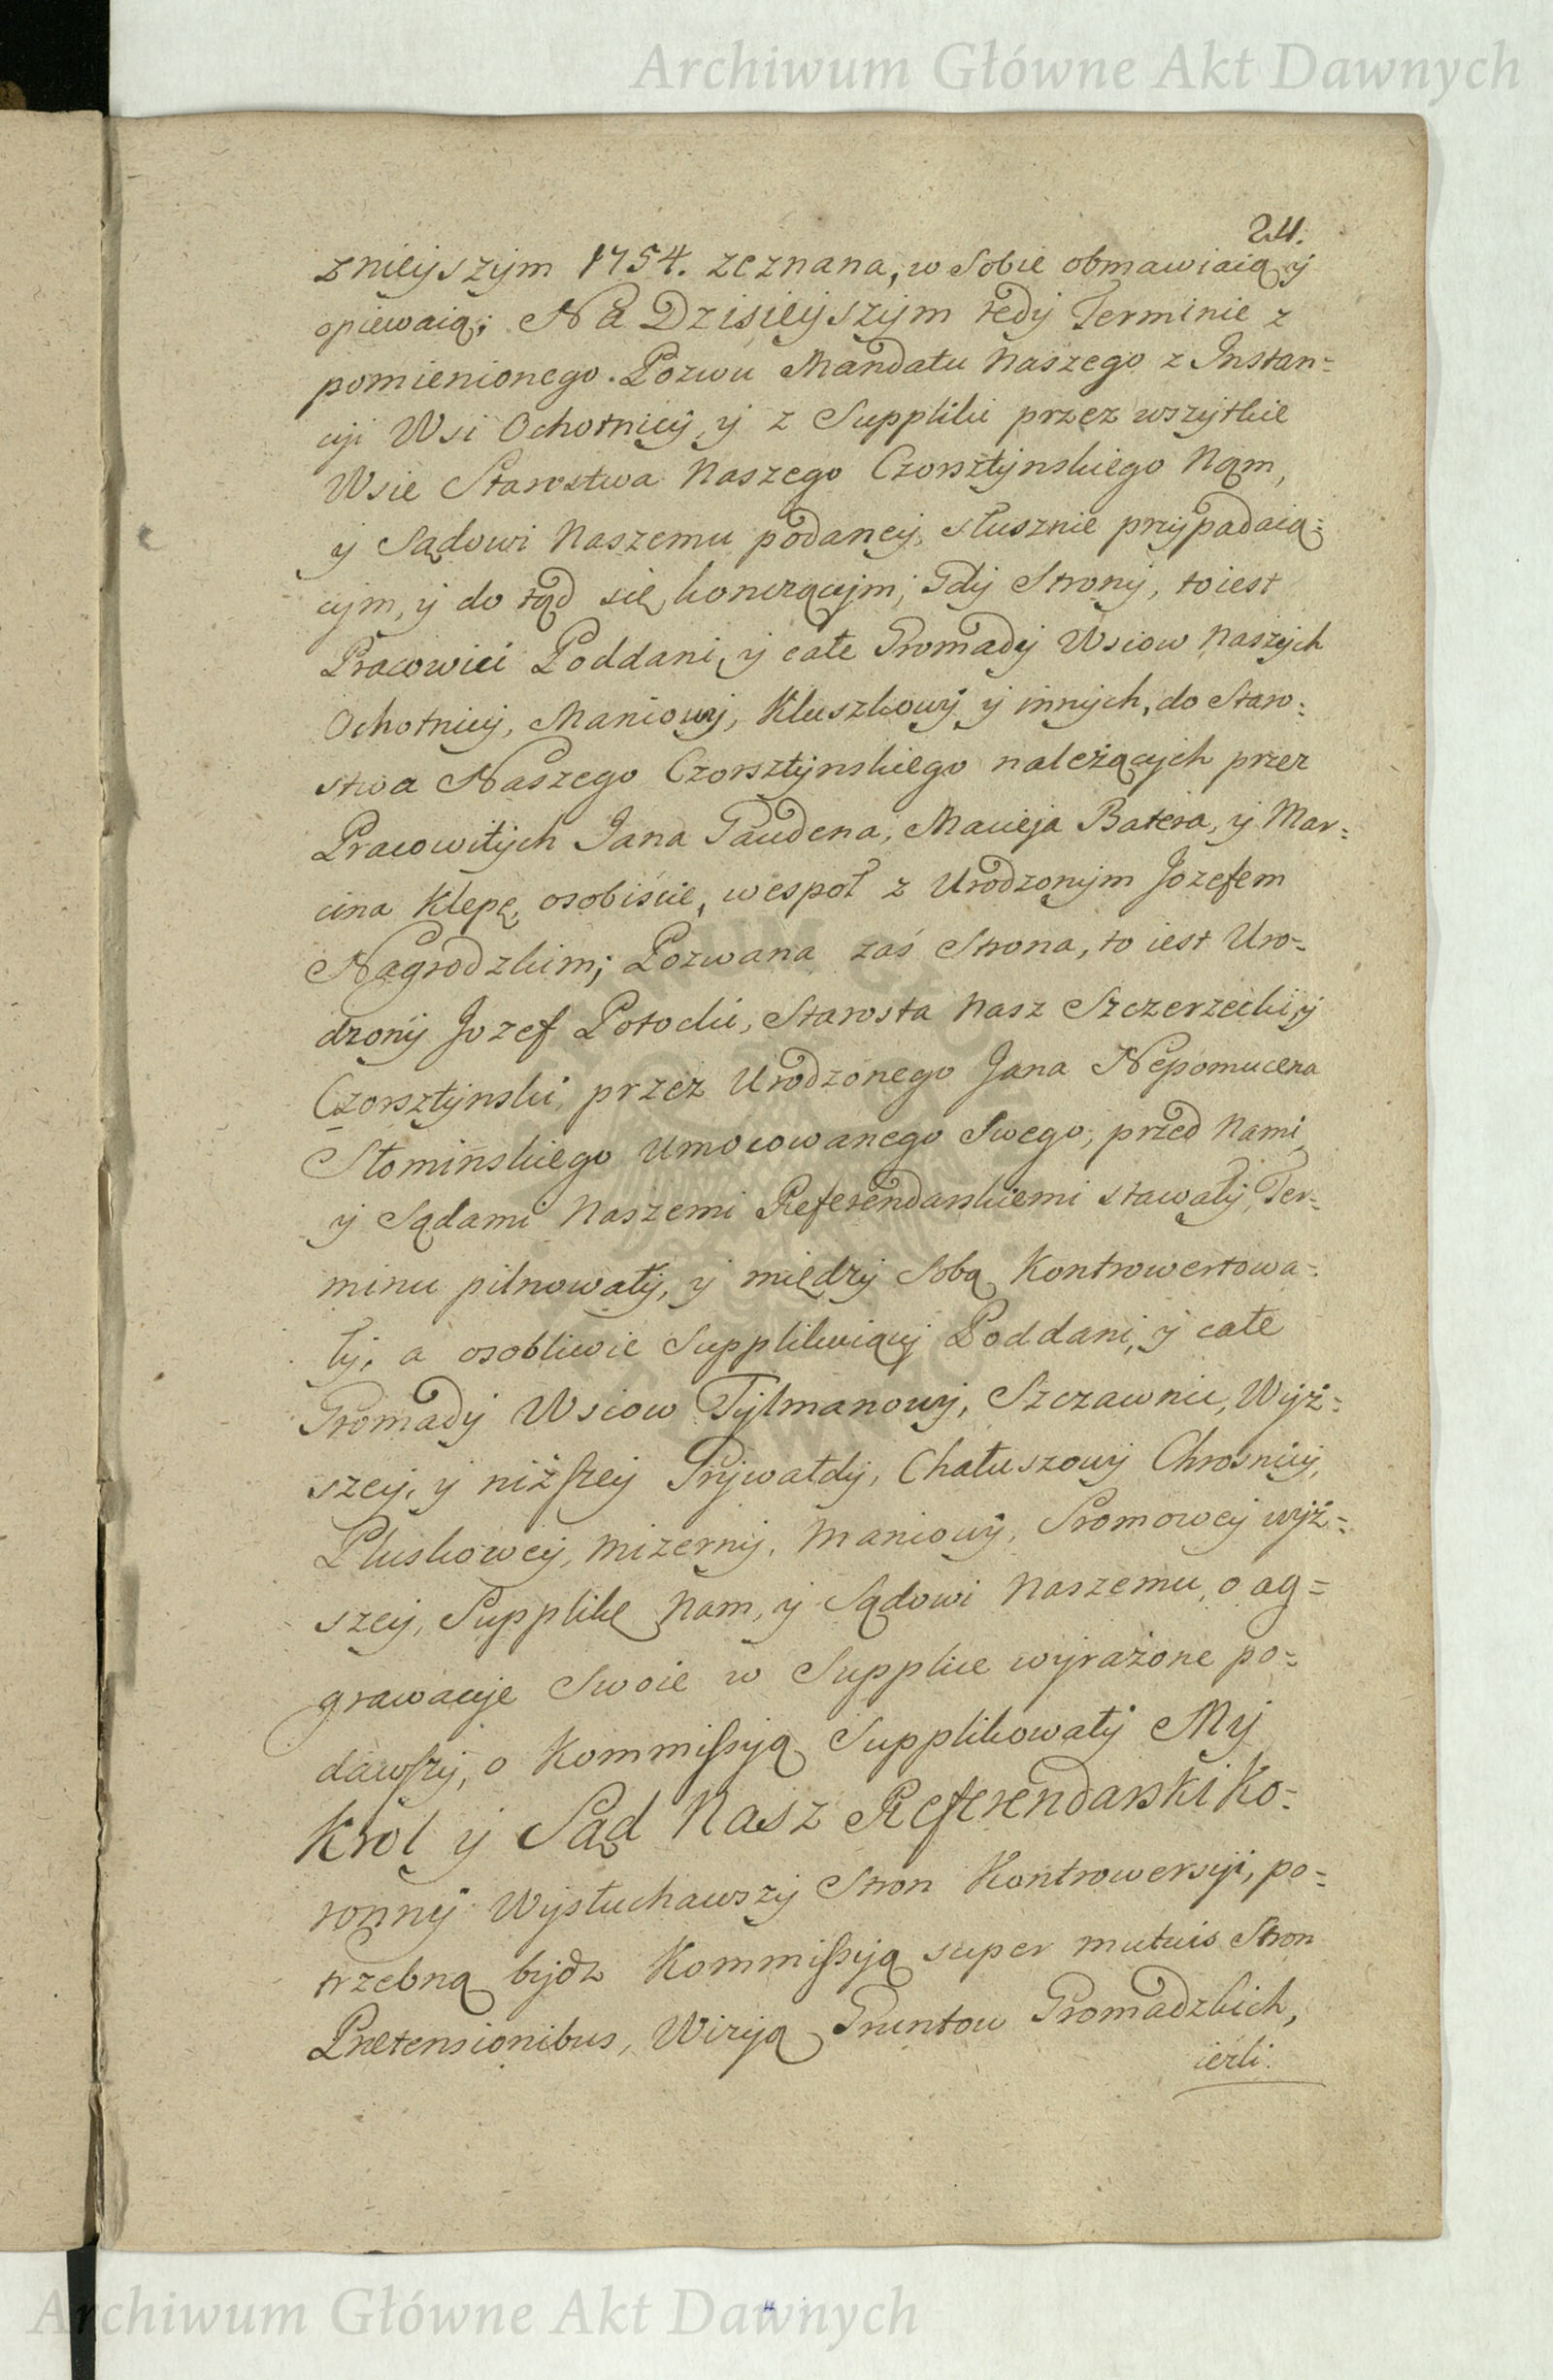 Archiwum Główne Akt Dawnych
24.
znieyszym 1754. zeznana, w Sobie obmawiaią y
opiewaią; Na Dzisieyszym tedy Terminie z
pomienionego Pozwu Mandatu Naszego z Instan=
cyi Wsi Ochotnicy, y z Suppliki przez wszytkie
Wsie Starostwa Naszego Czorsztynskiego Nąm,
y Sądowi Naszemu podaney, słusznie przypadaią=
cym, y do tąd się konczącym; Gdy Strony, to iest
Pracowici Poddani, y całe Gromady Wsiow Naszych
Ochotnicy, Maniowy, Kluszkowy y innych, do Staro=
stwa Naszego Czorsztynskiego należących przez
Pracowitych Jana Gaudena, Macieja Batera, y Mar=
cina Klepę, osobiście, wespoł z Urodzonym Jozefem
Nagrodzkim; Pozwana zaś Strona, to iest Uro=
dzony Jozef Potocki, Starosta Nasz Szczerzecki, y
Czorsztynski, przez Urodzonego Jana Nepomucena
Słominskiego Umocowanego Swego, przed Nami,
y Sądami Naszemi Referendarskiemi stawały, Ter=
minu pilnowały, y między Sobą Kontrowertowa=
ły, a osobliwie Supplikuiący Poddani, y całe
Gromady Wsiow Tylmanowy, Szczawnic, Wyż=
szey, y niższey Grywałdy, Chałuszowy Chrosnicy,
Pluskowey, Mizerny, Maniowy, Sromowey wyż=
szey, Supplikę Nam, y Sądowi Naszemu, o ag=
grawacye Swoie w Supplice wyrażone po=
dawszy, o Kommissyą Supplikowały My
Krol y Sąd Nasz Referendarski Ko=
ronny Wysłuchawszy Stron Kontrowersyi, po=
trzebną bydz Kommissyą super mutuis Stron
Prætensionibus, Wizyą Gruntow Gromadzkich,
ieżli
Archiwum Główne Akt Dawnych